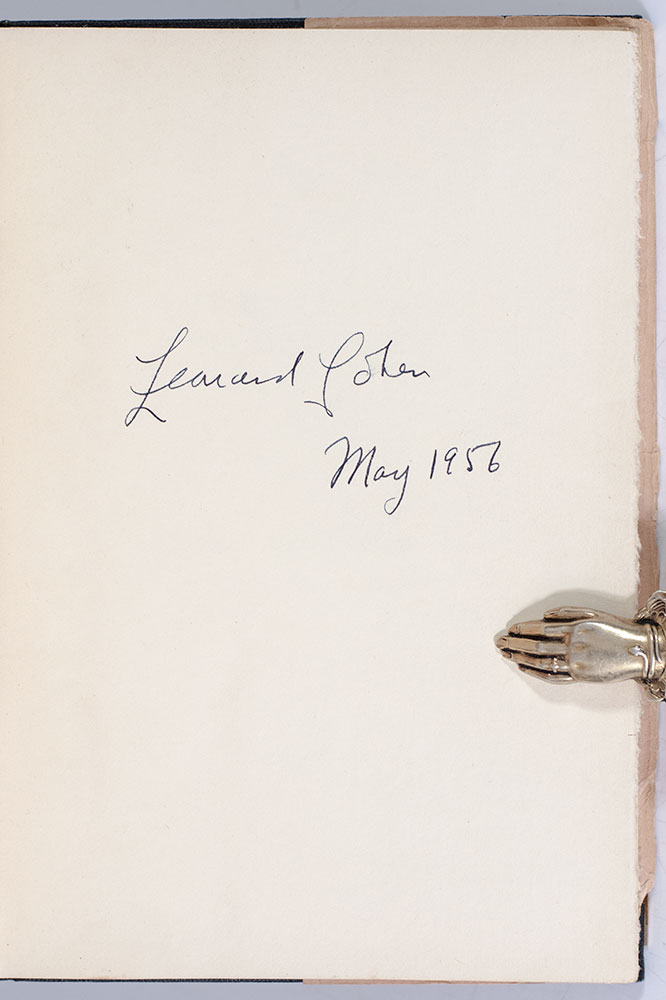 Leonard Cohen
May 1956